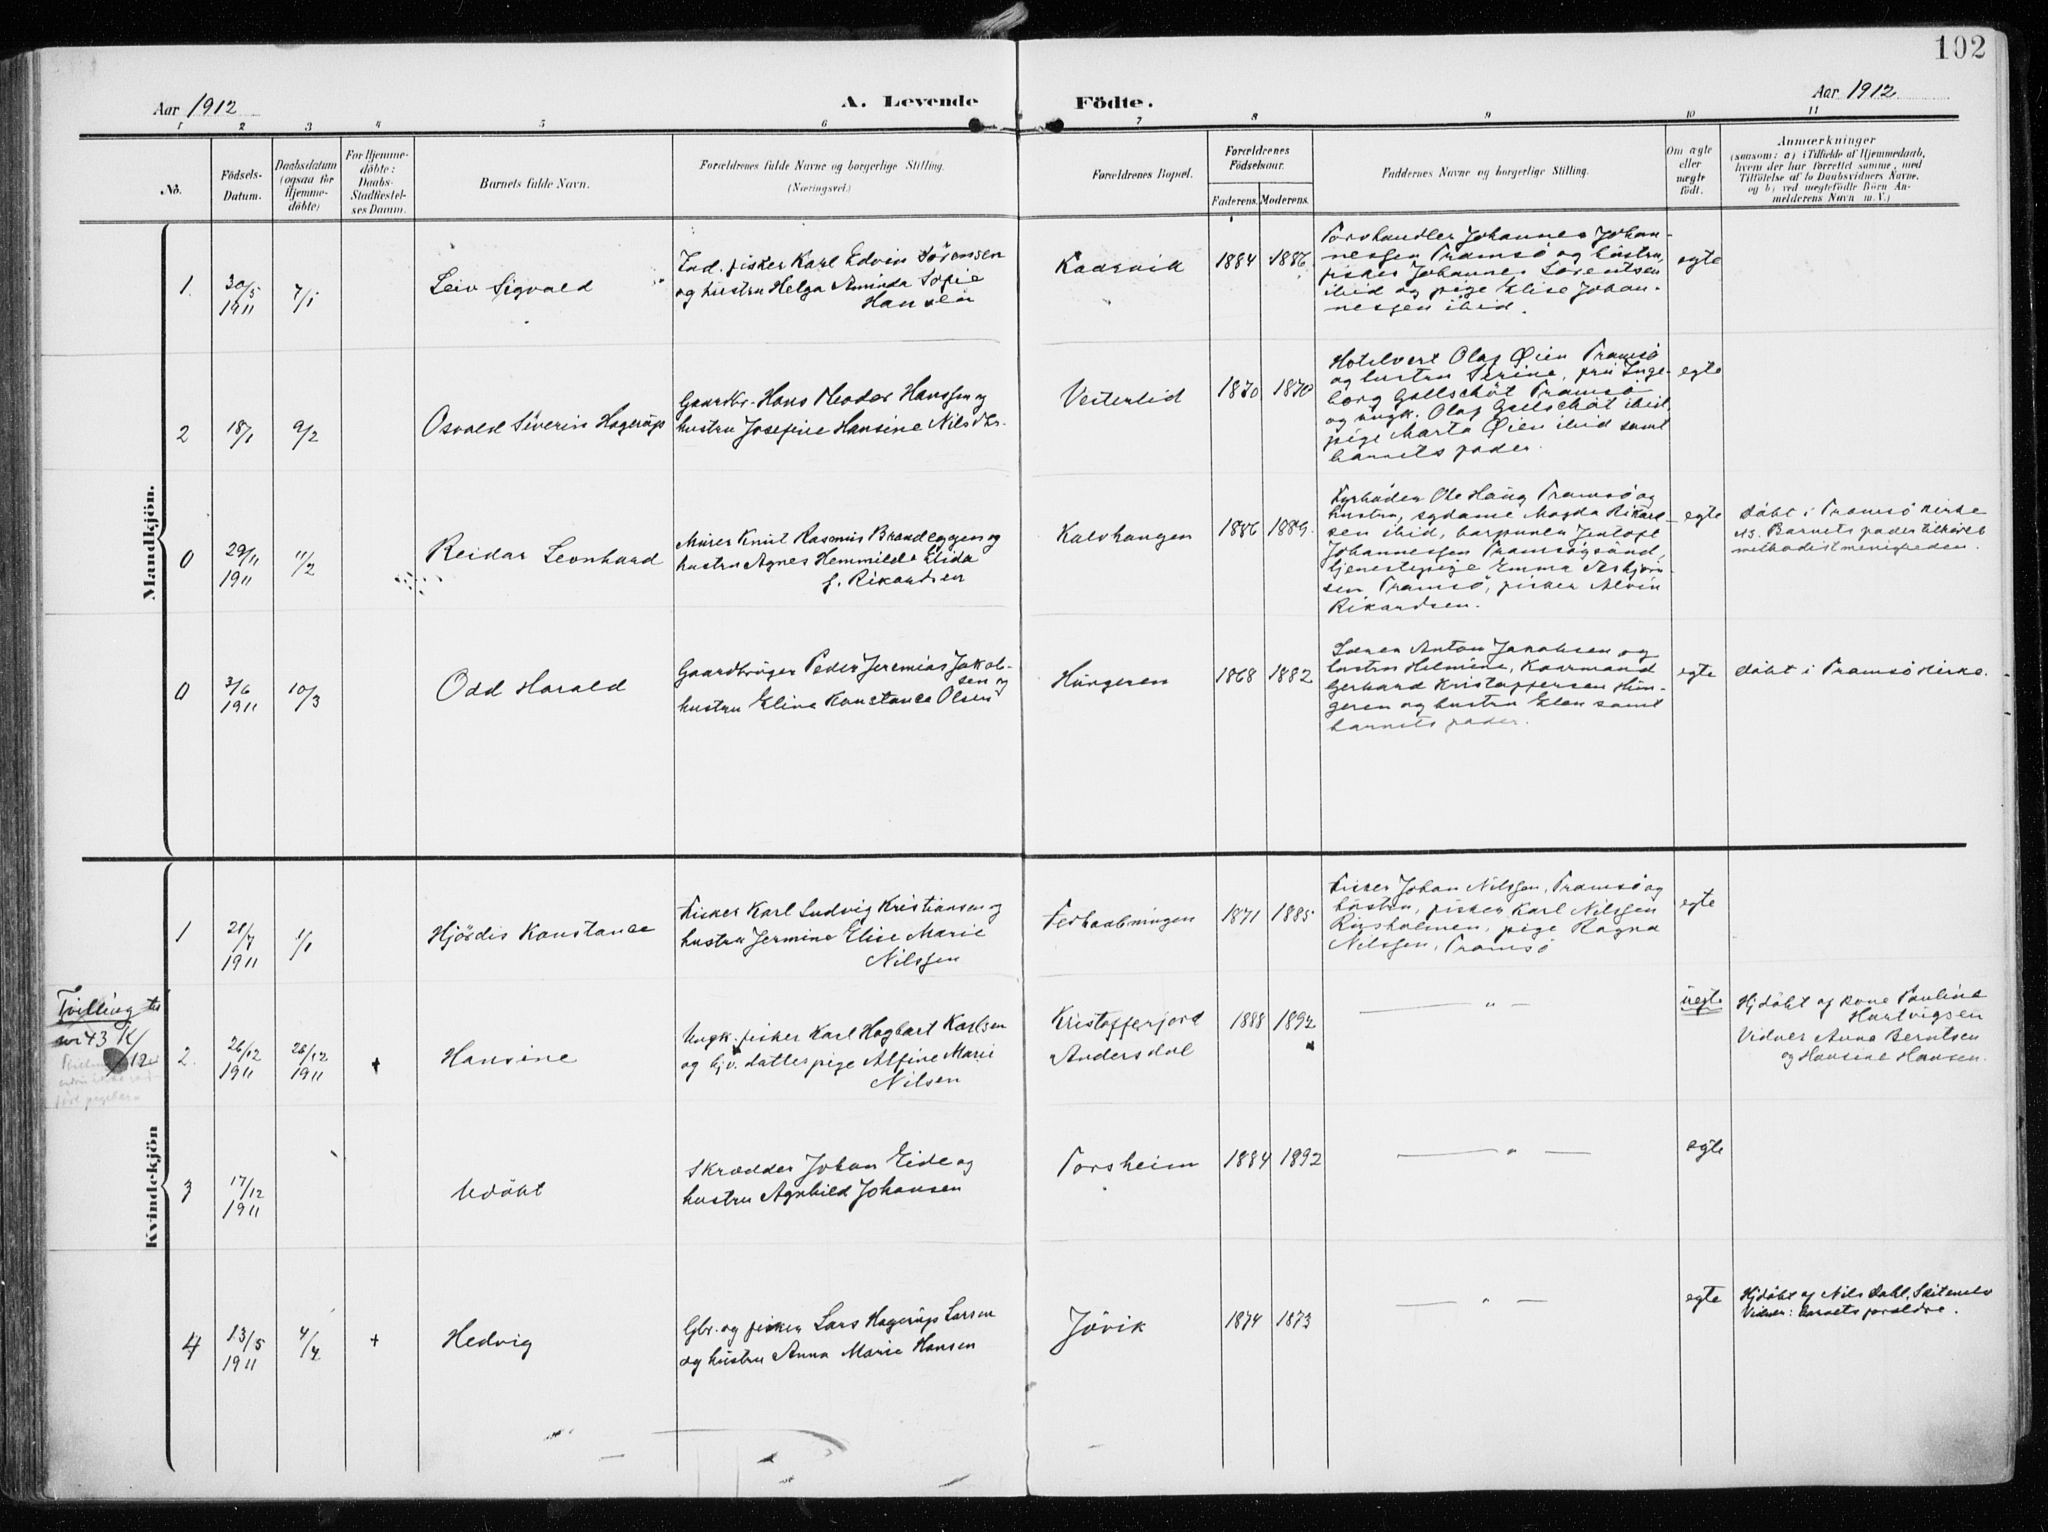 102
Aar 1912
A. Levende
Födte.
Aar 1912
1 2 3 4 5 6 7 8 9 10 11
No.
Födsels-
Datum.
Daabsdatum
(ogsaa for
Hjemme-
döbte)
For Hjemme-
döbte:
Daabs-
Stadfæstel-
ses Datum.
Barnets fulde Navn.
Forældrenes fulde Navne og borgerlige Stilling.
(Næringsvei.)
Forældrenes Bopæl.
Forældrenes
Födselsaar.
Faderens. Moderens.
Faddernes Navne og borgerlige Stilling.
Om ægte
eller
uægte
födt.
Anmærkninger
(saasom: a) i Tilfælde af Hjemmedaab,
hvem der har forrettet samme, med
Tilföielse af to Daabsvidners Navne,
og b) ved uægtefödte Börn An-
melderens Navn m. V.)
Mandkjön.
1.
30/5
1911
7/1
Leiv Sigvald
Ind. fisker Karl Edvin Sørensen
og hustru Helga Aminda Sofie
Hansen
Kaarvik
1884 1886
Torvhandler Johannes Johan-
nessen Tromsö og hustru,
fisker Johannes Lorentsen
ibid og pige Elise Johan-
nessen ibid.
egte
2
18/1
9/2
Osvald Séverin Hagerup
Gaardbr. Hans Theodor Hanssen og
hustru Josefine Hansine Nilsdtr.
Vesterlid
1870 1870
Hotelvert Olaf Øien Tromsö
og hustru Serine, frú Inge-
borg Gottschöt Tromsö
og ungk. Olaf Gottschöt ibid,
pige Marta Øien ibid samt
barnets fader.
egte
0
29/11
1911
11/2
Reidar Leonhard
Murer Knut Rasmus Brandeggen og
hustru Agnes Hemmilde Elida
f. Rikardsen
Kalvhaugen
1886 1889
Fyrböder Ole Haug Tromsö og
hustru, sydame Magda Rikard-
sen ibid, harpuner Jentoft
Johannessen Tromsöysund,
tjenestepige Emma Asbjörn-
sen Tromsö, fisker Alvin
Rikardsen.
egte
döbt i Tromsö kirke
NB. Barnets fader tilhörer
methodistmenigheden.
0
3/6
1911
10/3
Odd Harald
Gaardbrúger Peder Jeremias Jakob-
sen og
hustru Eline Konstance Olsen
Hungeren
1868 1882
Lærer Anton Jakobsen og
hustru Helmine, Kaarmand
Gerhard Kristoffersen Hun-
geren og hustru Elen samt
barnets fader.
egte
döbt i Tromsö kirke.
Kvindekjön
1
1911
1/1
Hjördis Konstance
Fisker Karl Ludvig Kristiansen og
hustru Jermine Elise Marie
Nilssen
1871 1885
Fisker Johan Nilssen, Tromsö og
hústru, fisker Karl Nilssen
Risholmen, pige Ragna
Nilssen, Tromsö
egte
Tvilling til
nr 43 K/
2.
26/12
1911
26/12
1911
+
Hansine
Ungk. fisker Karl Hagbart Karlsen
og hjv. datter pige Alfine Marie
Nilsen
Kristofferjord
Andersdal
1888 1892
— " —
uegte
Hjdöbt af kone Pauline
Hartvigsen
Vidner Anna Berntsen
og Hansine Hansen.
3
17/12
1911
Udöbt
Skrædder Johan Eide og
hustru Agnhild Johansen
Torsheim
1884 1892
— " —
egte
4
13/5
1911
+
Hedvig
Gbr. og fisker Lars Hagerup Larsen
og hustru Anna Marie Hansen
Jövik
1874 1873
— " —
egte
Hjdöbt af Nils Dahl, Skitenelv
Vidner: barnets forældre.